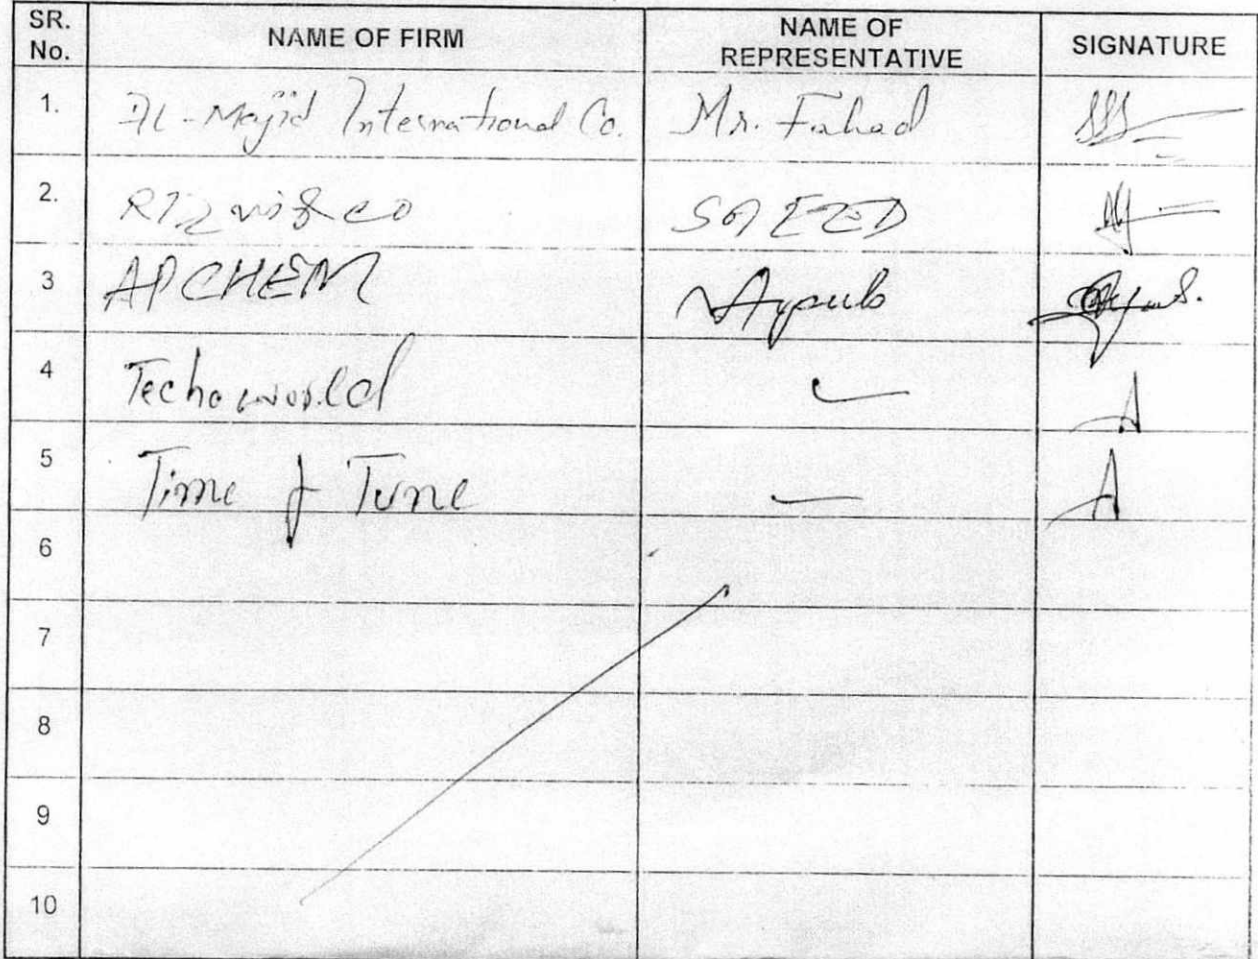 SR. No. NAME OF FIRM NAME OF REPRESENTATIVE SIGNATURE
1. AL-Majid International Co. Mr. Fahad
2. Rizvi & co SAEED
3 APCHEM Ayoub
4 Technoworld
5 Time & Tune
6
7
8
9
10